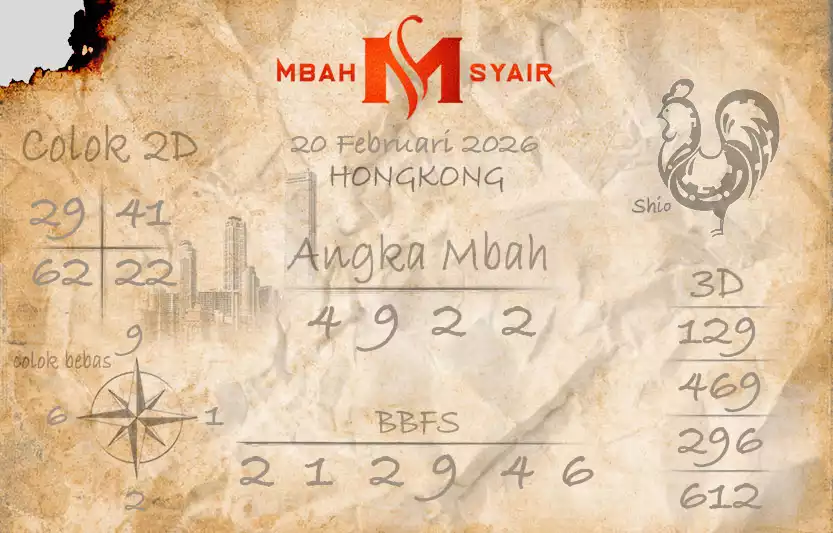 MBAH M SYAIR
20 Februari 2026
HONGKONG
Colok 2D
29 41
62 22
Shio
Angka Mbah
4 9 2 2
3D
129
469
296
612
9
colok bebas
6 1
2
BBFS
2 1 2 9 4 6